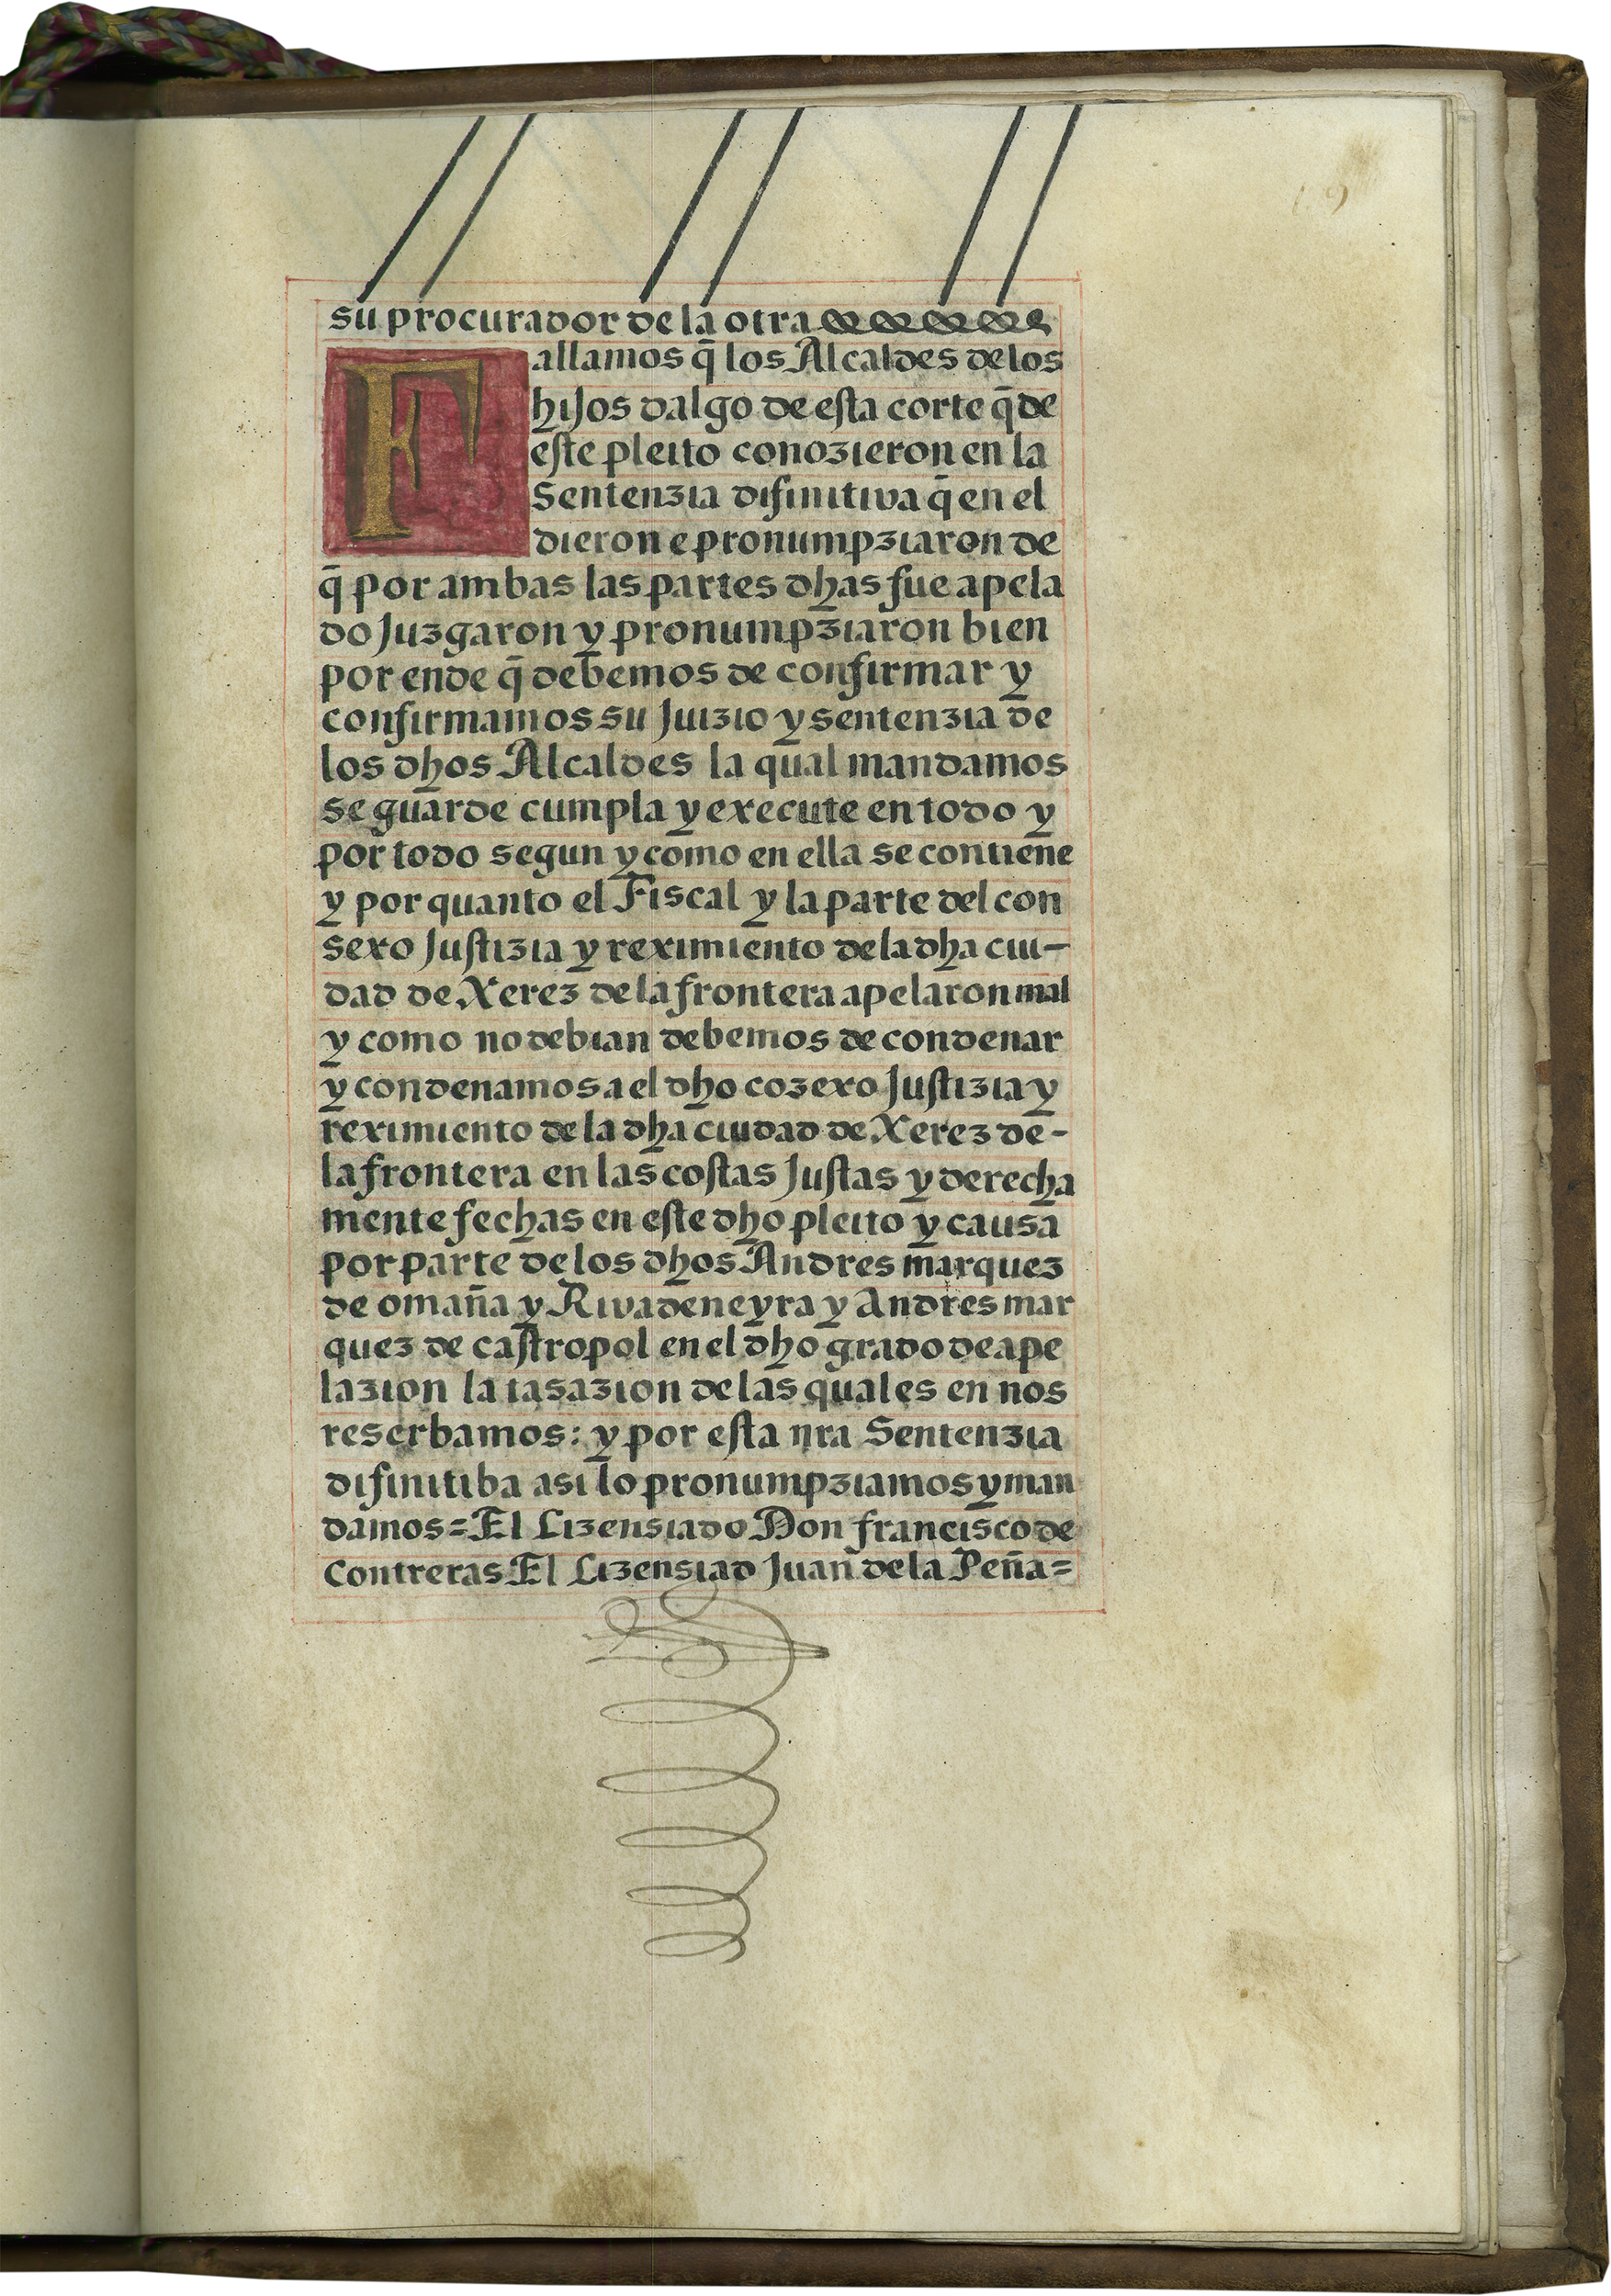 su procurador de la otra
Fallamos q̄ los Alcaldes de los
hijos dalgo de esta corte q̄ de
este pleito conozieron en la
Sentenzia difinitiva q̄ en el
dieron e pronumpziaron de
q̄ por ambas las partes dhas fue apela
do Juzgaron y pronumpziaron bien
por ende q̄ debemos de confirmar y
confirmamos su Juizio y sentenzia de
los dhos Alcaldes la qual mandamos
se guarde cumpla y execute en todo y
por todo segun y como en ella se contiene
y por quanto el Fiscal y la parte del con
sexo Justizia y reximiento de la dha ciu-
dad de Xerez de la frontera apelaron mal
y como no debian debemos de condenar
y condenamos a el dho cozexo Justizia y
reximiento de la dha ciudad de Xerez de-
la frontera en las costas Justas y derecha
mente fechas en este dho pleito y causa
por parte de los dhos Andres marquez
de omaña y Rivadeneyra y Andres mar
quez de castropol en el dho grado de ape
lazion la tasazion de las quales en nos
reserbamos: y por esta nra Sentenzia
difinitiba asi lo pronumpziamos y man
damos = El Lizensiado Don francisco de
Contreras El Lizensiad Juan de la Peña =